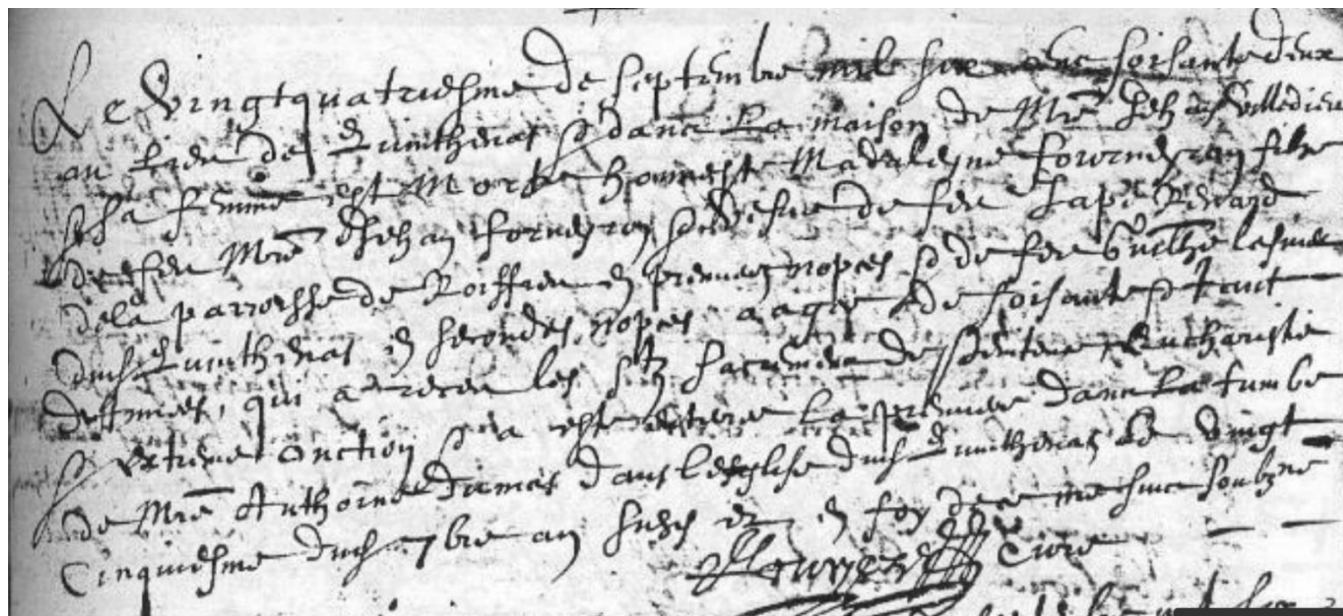 Le vingtquatriesme de septembre mil six cens soisante deux
au lieu de Quinthenas & dans la maison de Mre Jehan
& sa femme est morte honneste Madaleyne Forneyron fille
de feu Mre Jehan Forneyron & vefve de feu
de la parroisse de Roiffieu en premieres nopces & de feu
dud Quinthenas en secondes nopces aagee de soisante & huit
qui a receu les stz sacremens de penitence Eucharistie
& extreme onction & a esté enterre la premiere dans la tumbe
de Mre Anthoine Dumas dans lesglise dud Quinthenas le vingt
cinquiesme dud 7bre an susd et en foy de ce me suis soubzné
Cure